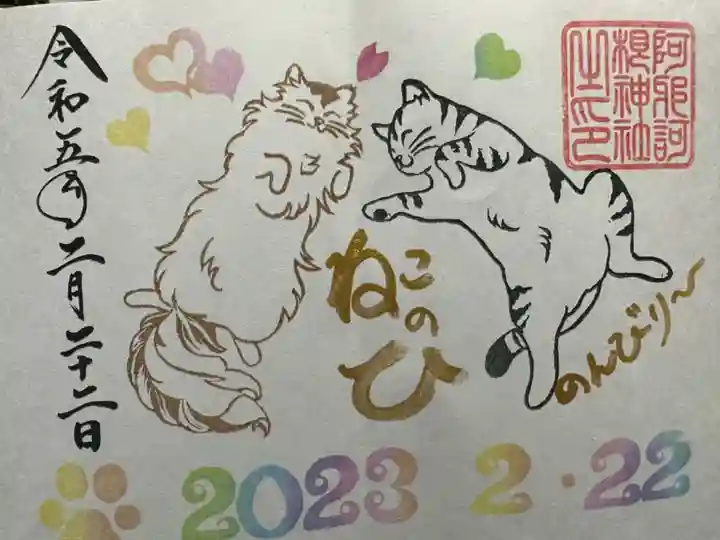 令和五年二月二十二日
ねこの
ひ
のんびり〜
阿邪訶
根神社
之印
2023 2・22